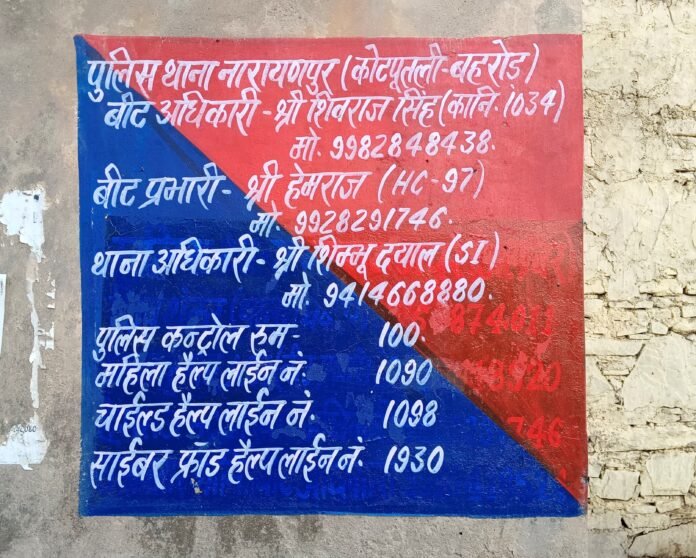 पुलिस थाना नारायणपुर (कोटपूतली-बहरोड़)
बीट अधिकारी - श्री शिवराज सिंह (कानि. 1034)
मो. 9982848438.
बीट प्रभारी - श्री हेमराज (HC-97)
मो. 9928291746.
थाना अधिकारी - श्री शिम्भू दयाल (SI)
मो. 9414668880.
पुलिस कन्ट्रोल रुम - 100.
महिला हैल्प लाईन नं. 1090
चाईल्ड हैल्प लाईन नं. 1098
साईबर फ्रॉड हैल्पलाईन नं. 1930